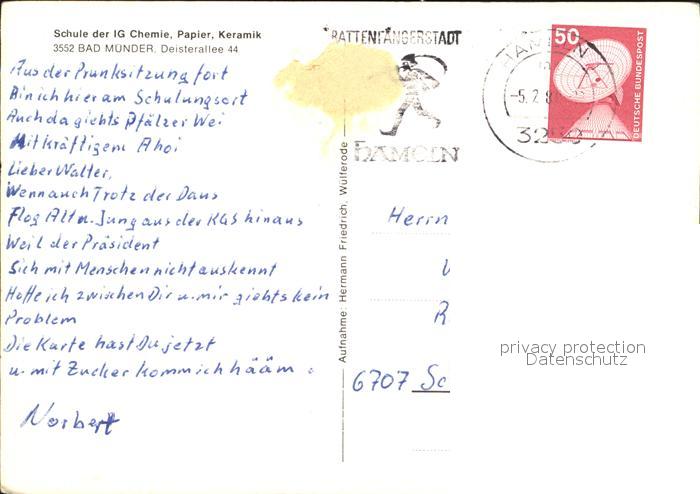 Schule der IG Chemie, Papier, Keramik
3552 BAD MÜNDER, Deisterallee 44
Aus der Prunksitzung fort
Bin ich hier am Schulungsort
Auch da giebts Pfälzer Wei
Mit kräftigem Ahoi
Lieber Walter,
Wenn auch Trotz der Daus
Flog Alt u. Jung aus der KGS hinaus
Weil der Präsident
Sich mit Menschen nicht auskennt
Hoffe ich zwischen Dir u. mir giebts kein
Problem
Die Karte hast Du jetzt
u. mit Zucker komm ich hääm.
Norbert
Aufnahme: Hermann Friedrich, Wülferode
RATTENFÄNGERSTADT
HAMELN
HAMELN
-5.2.8
50
DEUTSCHE BUNDESPOST
Herrn
6707 Sc
privacy protection
Datenschutz